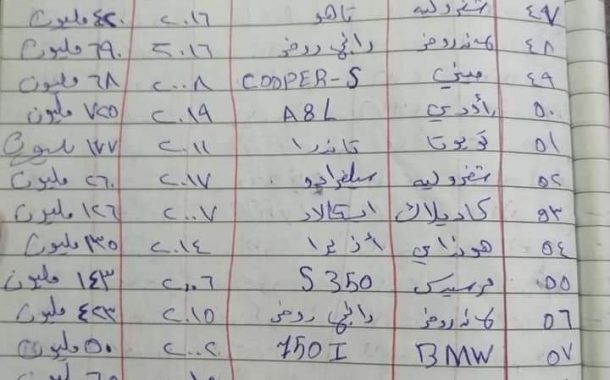 ٤٧ شفروليه تاهو ٢٠١٦ ٤٢٠ مليون
٤٨ لاندروفر رانج روفر ٢٠١٦ ٦٩٠ مليون
٤٩ ميني COOPER-S ٢٠٠٨ ٦٨ مليون
٥٠ أودي A8L ٢٠١٩ ٧٢٥ مليون
٥١ تويوتا تاندرا ٢٠١١ ١٧٧ مليون
٥٢ شفروليه سلفرادو ٢٠١٧ ٢٦٠ مليون
٥٣ كاديلاك اسكالاد ٢٠٠٧ ١٢٦ مليون
٥٤ هونداي أزيرا ٢٠١٤ مليون
٥٥ مرسيدس S 350 ٢٠٠٦ ١٤٣ مليون
٥٦ لاندروفر رانج روفر ٢٠١٥ ٤٢٣ مليون
٥٧ BMW 750I ٢٠٠٢ ٥٠ مليون